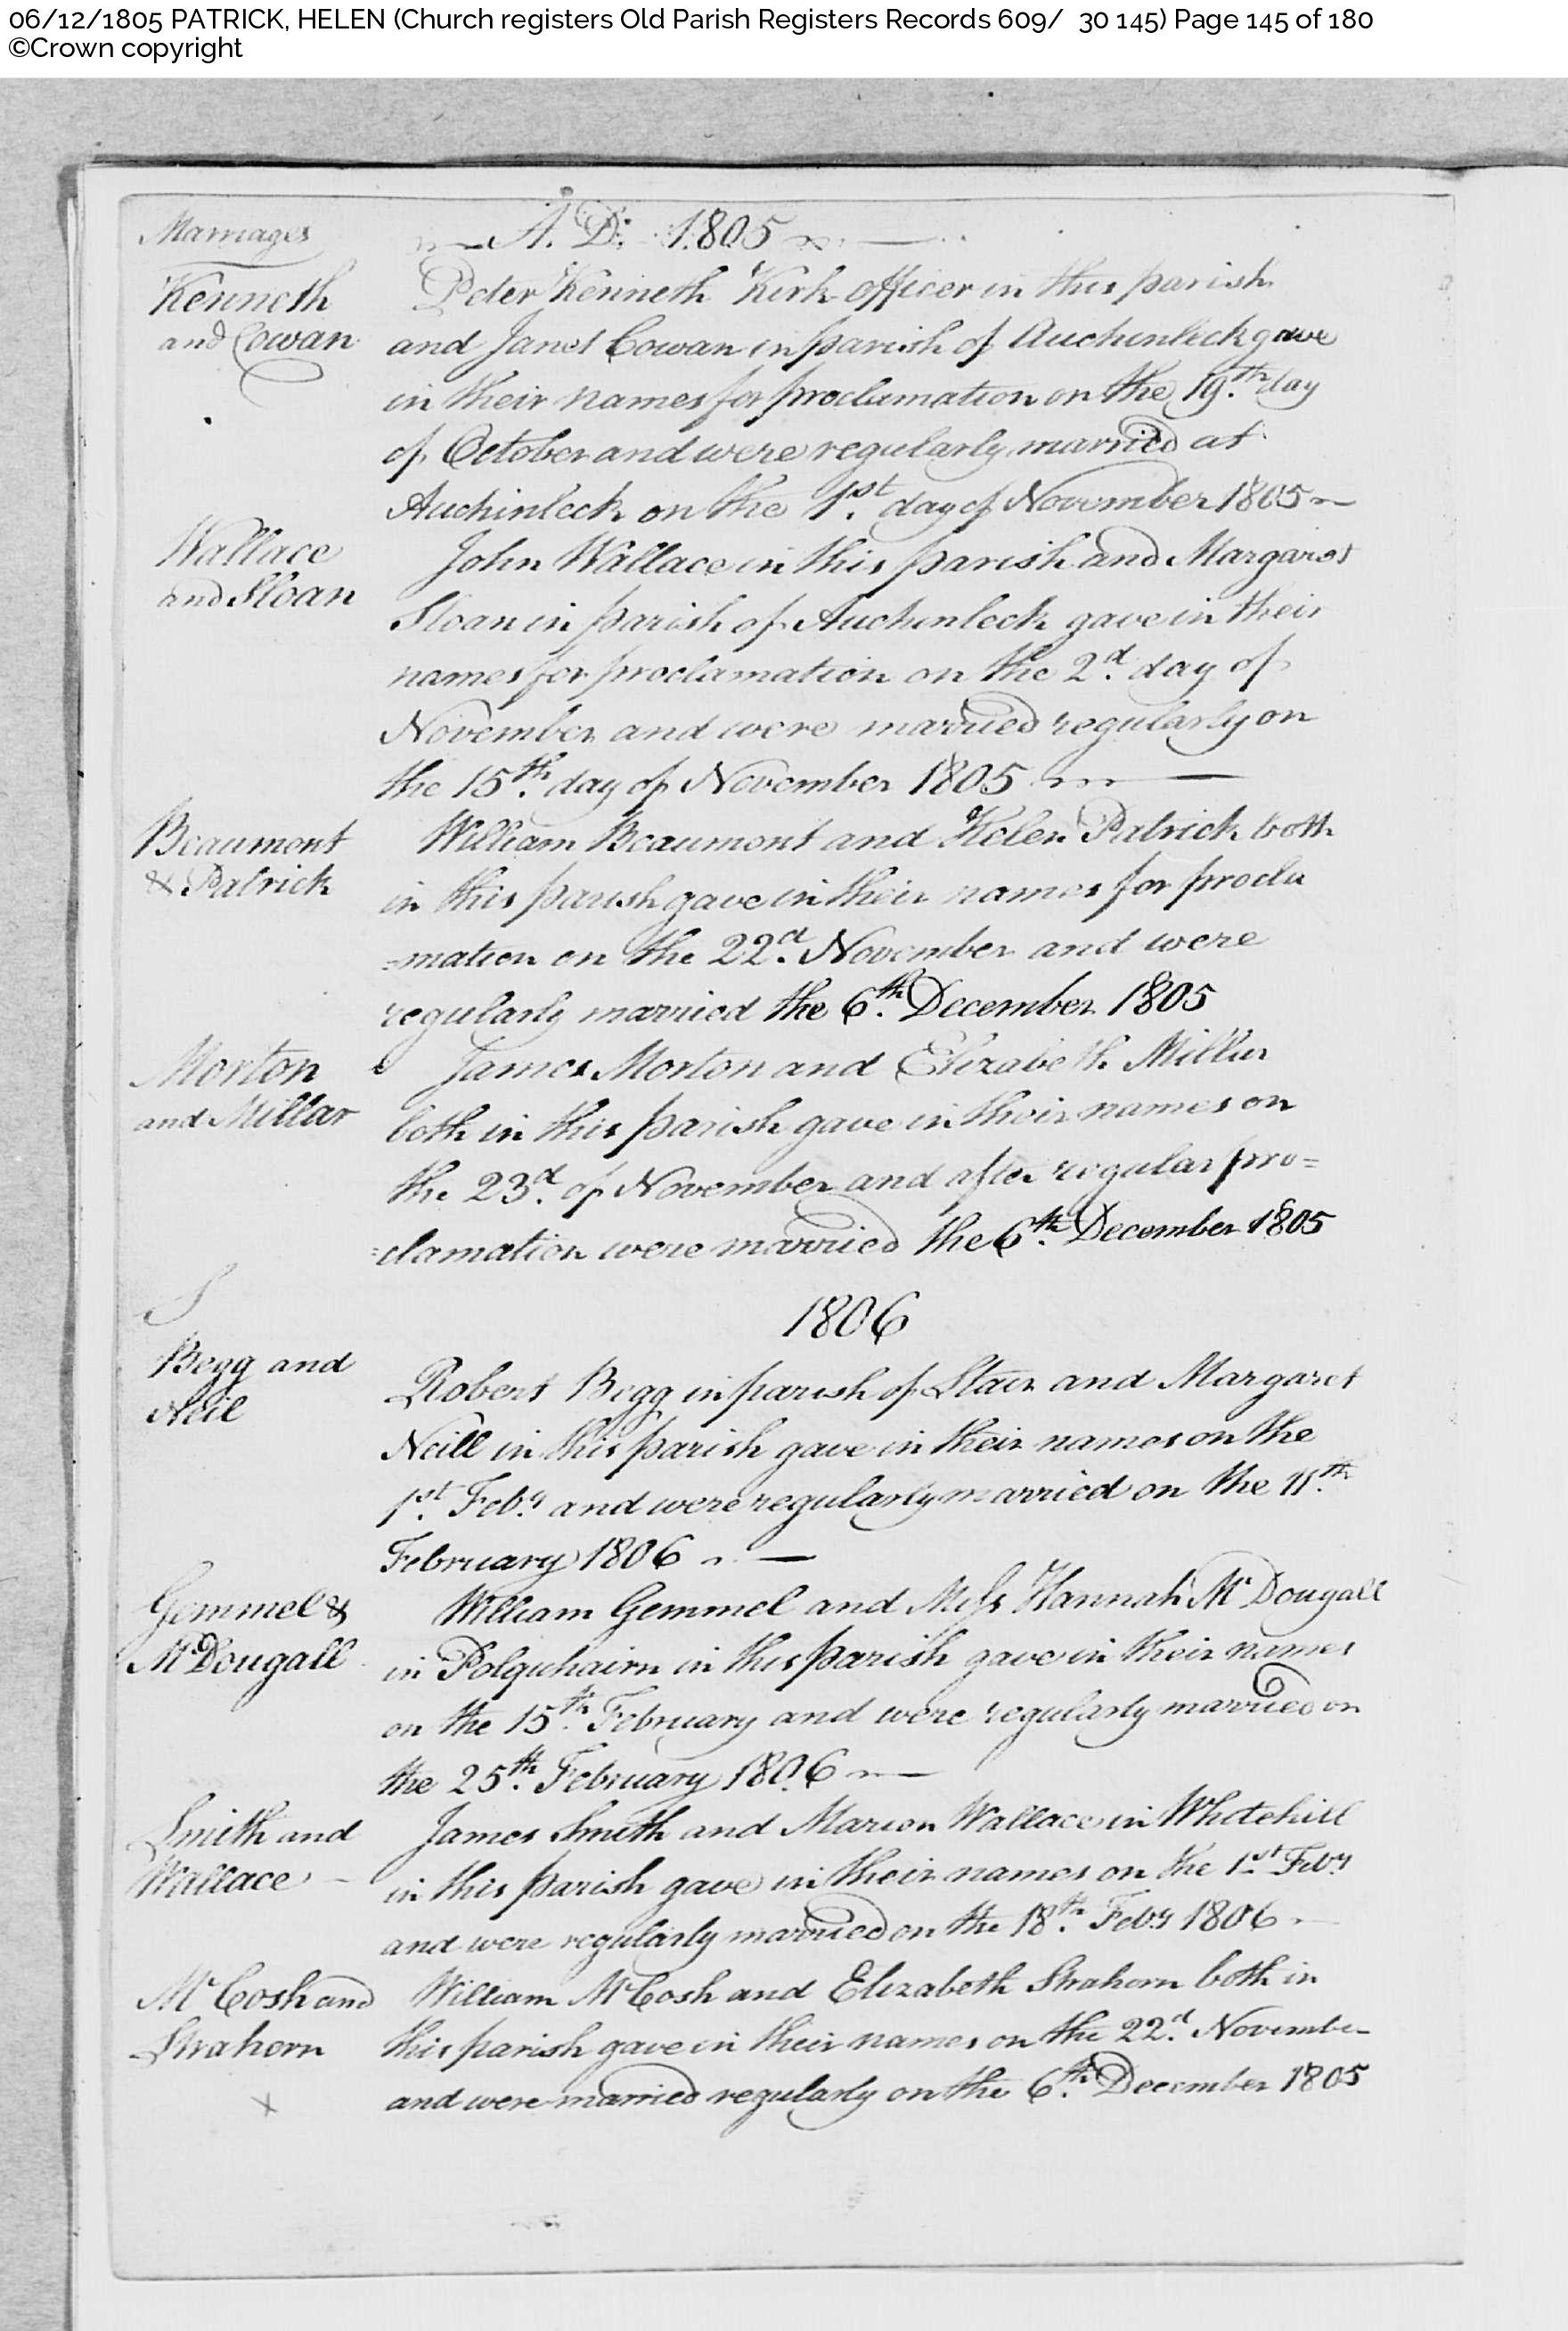 06/12/1805 PATRICK, HELEN (Church registers Old Parish Registers Records 609/ 30 145) Page 145 of 180
©Crown copyright
Marriages
A. D. 1805
Kenneth
and Cowan
Peter Kenneth Kirk officer in this parish
and Janet Cowan in parish of Auchinleck gave
in their names for proclamation on the 19th. day
of October and were regularly married at
Auchinleck on the 1st. day of November 1805
Wallace
and Sloan
John Wallace in this parish and Margaret
Sloan in parish of Auchinleck gave in their
names for proclamation on the 2d. day of
November and were married regularly on
the 15th. day of November 1805
Beaumont
& Patrick
William Beaumont and Helen Patrick both
in this parish gave in their names for procla
=mation on the 22d. November and were
regularly married the 6th. December 1805
Morton
and Millar
James Morton and Elizabeth Millar
both in this parish gave in their names on
the 23d. of November and after regular pro=
=clamation were married the 6th. December 1805
1806
Begg and
Neil
Robert Begg in parish of Stair and Margaret
Neill in this parish gave in their names on the
1st. Feby and were regularly married on the 11th.
February 1806
Gemmel &
McDougall
William Gemmel and Miss Hannah McDougall
in Polquhairn in this parish gave in their names
on the 15th. February and were regularly married on
the 25th. February 1806
Smith and
Wallace
James Smith and Marion Wallace in Whitehill
in this parish gave in their names on the 1st Feby
and were regularly married on the 18th. Feby 1806
McCosh and
Strahorn
William McCosh and Elizabeth Strahorn both in
this parish gave in their names on the 22d. November
and were married regularly on the 6th. December 1805
x